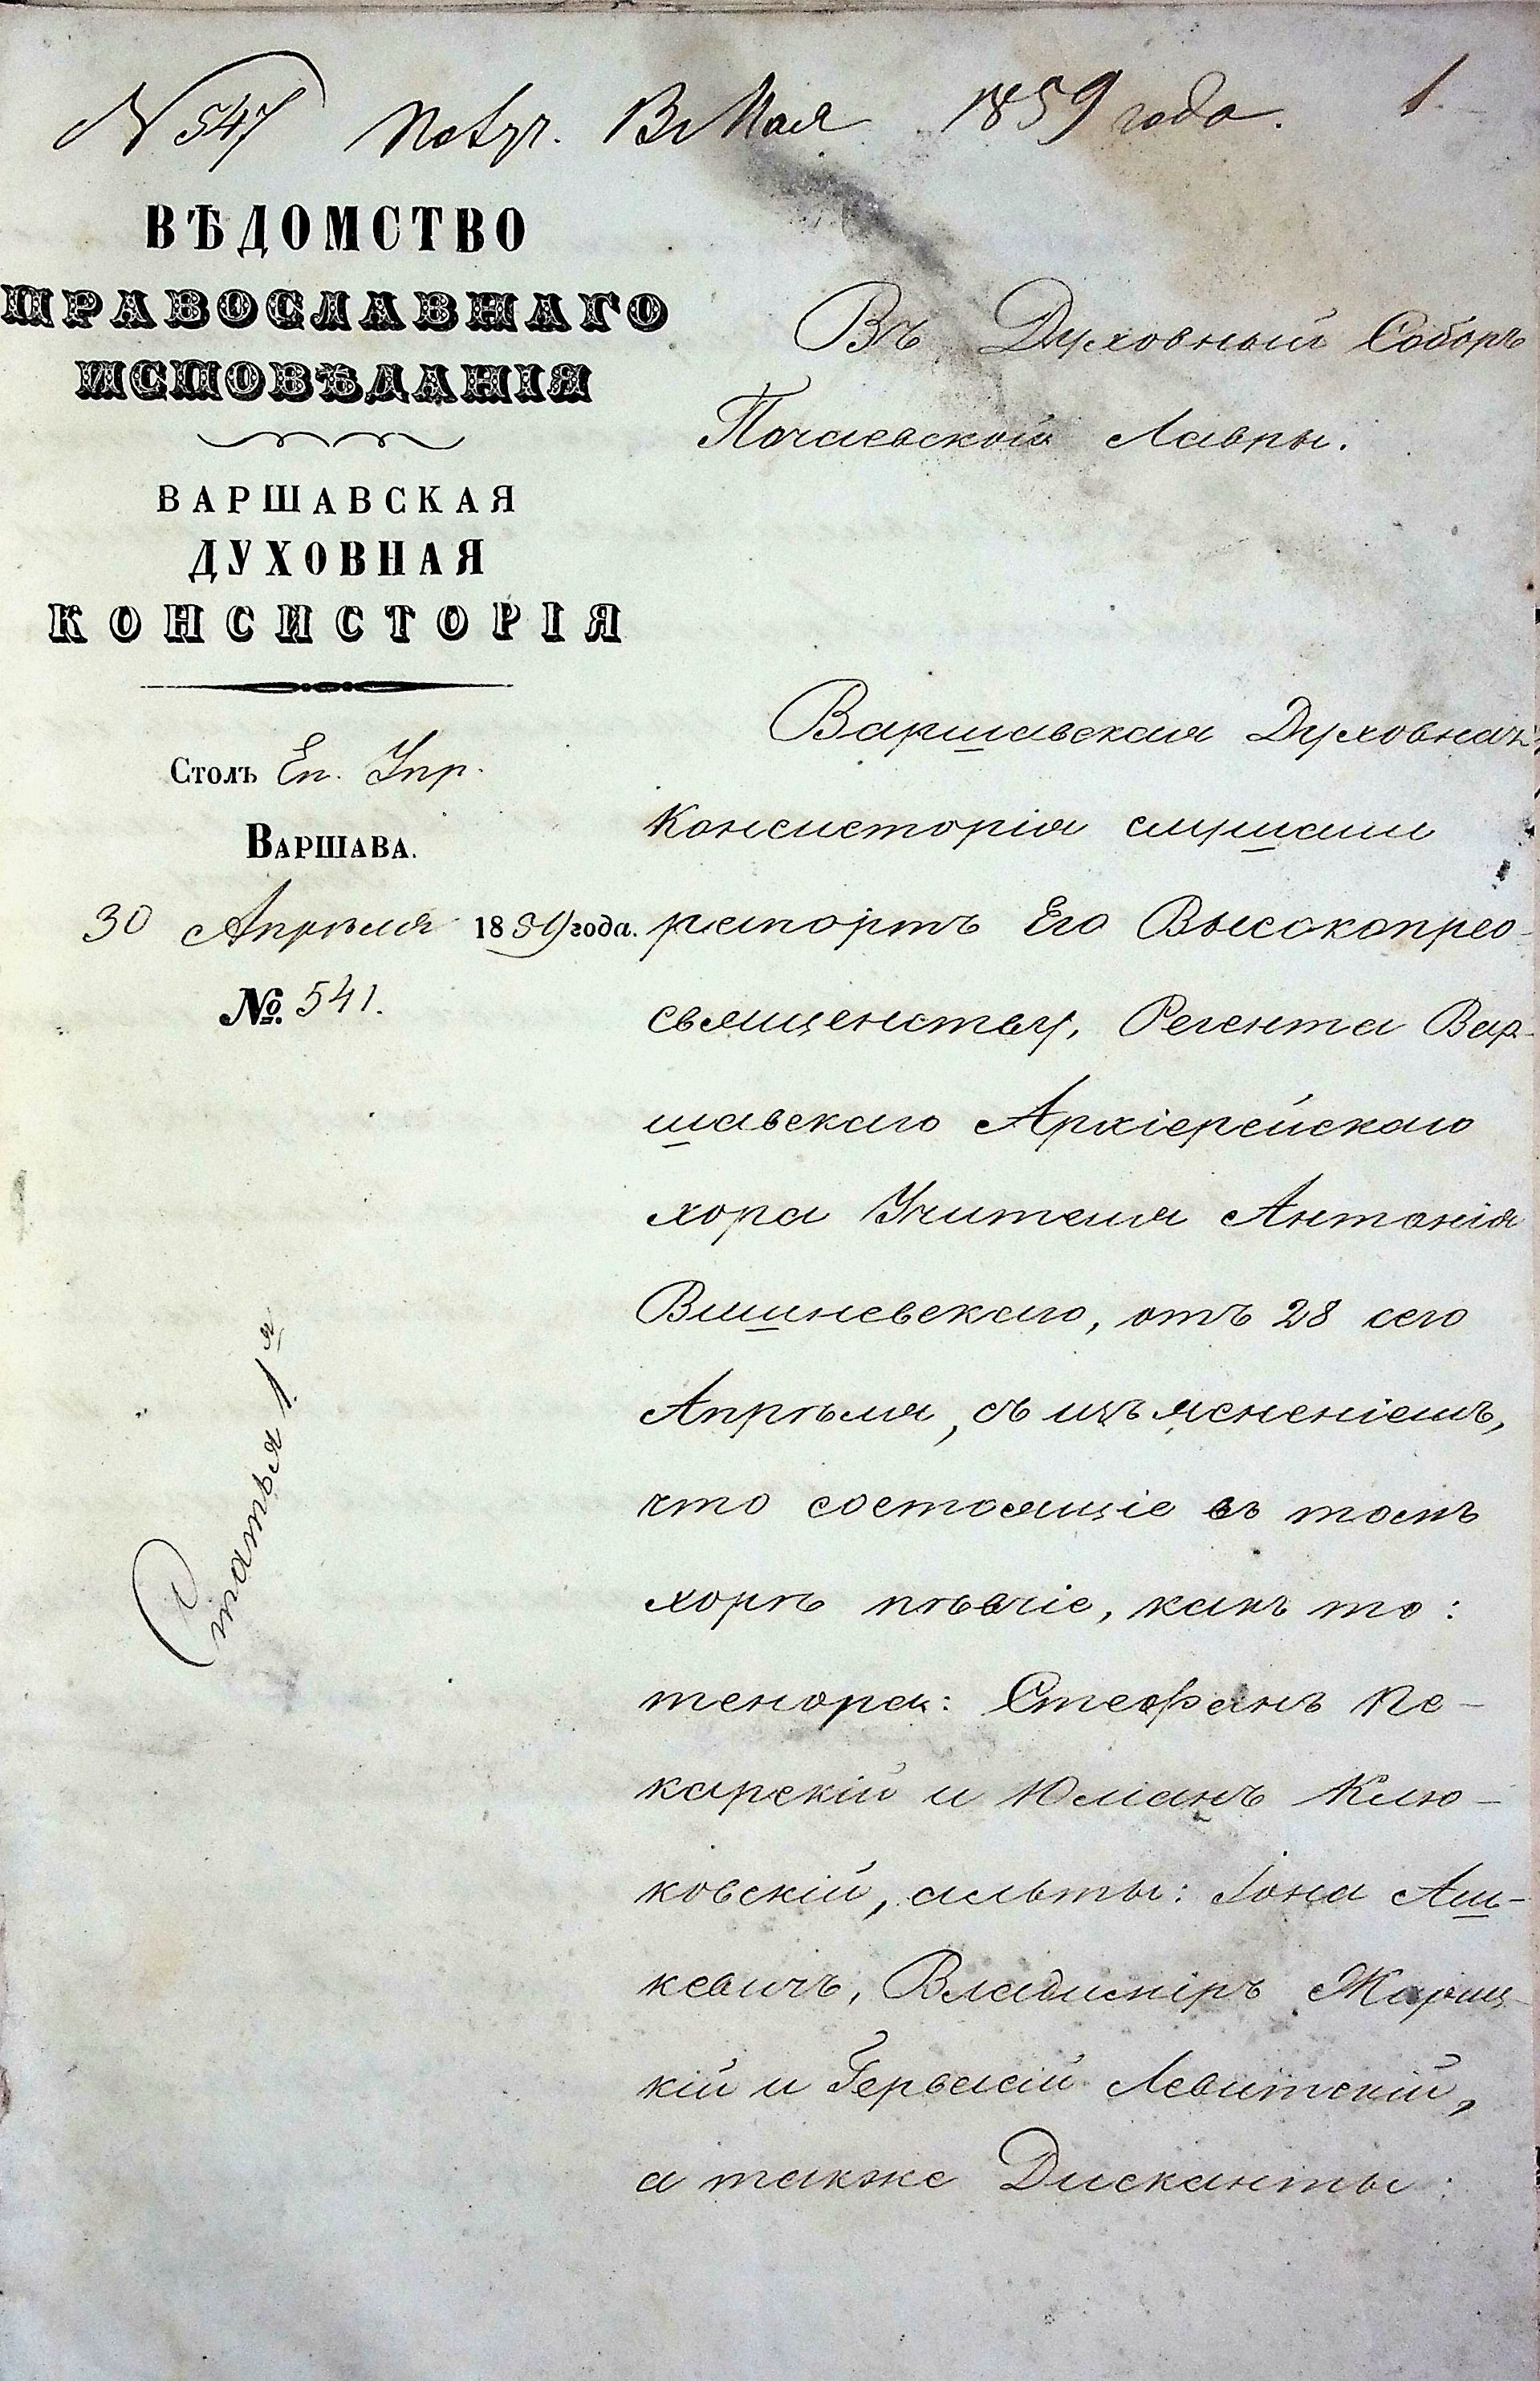 № 547 Пол. 13 Мая 1859 года. 1
ВѢДОМСТВО
ПРАВОСЛАВНАГО
ИСПОВѢДАНІЯ
ВАРШАВСКАЯ
ДУХОВНАЯ
КОНСИСТОРІЯ
Столъ Еп. Упр.
ВАРШАВА.
30 Апрѣля 1859 года.
№ 541.
Статья 1я
Въ Духовный Соборъ
Почаевской Лавры.
Варшавская Духовная
Консисторія слушали
рапортъ Его Высокопрео-
священству, Регента Вар-
шавскаго Архіерейскаго
хора Учителя Антонія
Вишневскаго, отъ 28 сего
Апрѣля, съ изъясненіемъ,
что состоящіе въ томъ
хорѣ пѣвчіе, какъ то:
тенора: Стефанъ Пе-
карскій и Юліанъ Клю-
ковскій, альты: Іона Аш-
кевичъ, Владиміръ Жариц-
кій и Гервасій Левитскій,
а также Дисканты: